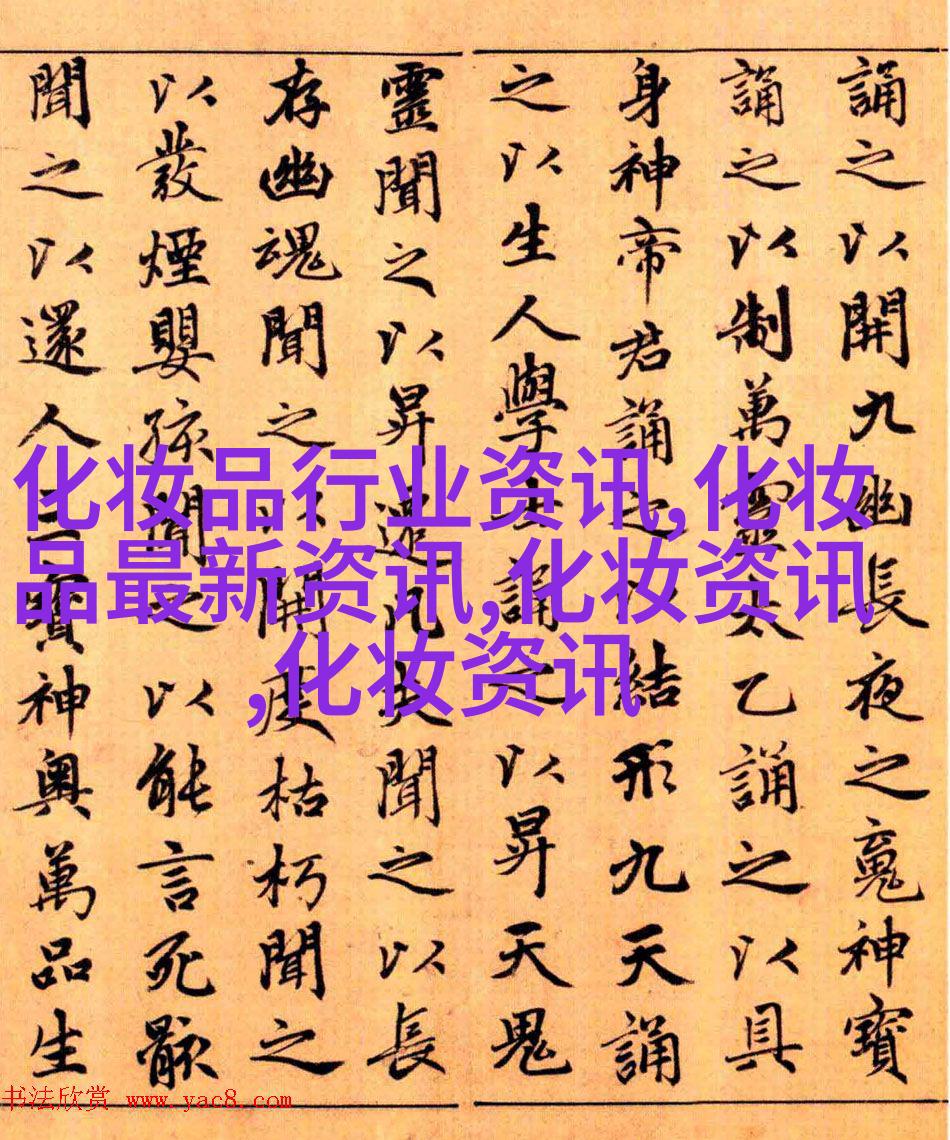 誦之以開九幽長夜之䰟神寶
誦之以制萬靈太乙誦之以具
身神帝君誦之以結形九天誦
之以生人學士誦之以昇天鬼
靈聞之以昇遷凡夫聞之以長
存幽魂聞之以開度枯朽聞之
以發煙嬰孩聞之以能言死骸
聞之以還人三寶神奧萬品生
化妆品行业资讯,化妆
品最新资讯,化妆资讯
,化妆资讯
书法欣赏 www.yac8.com